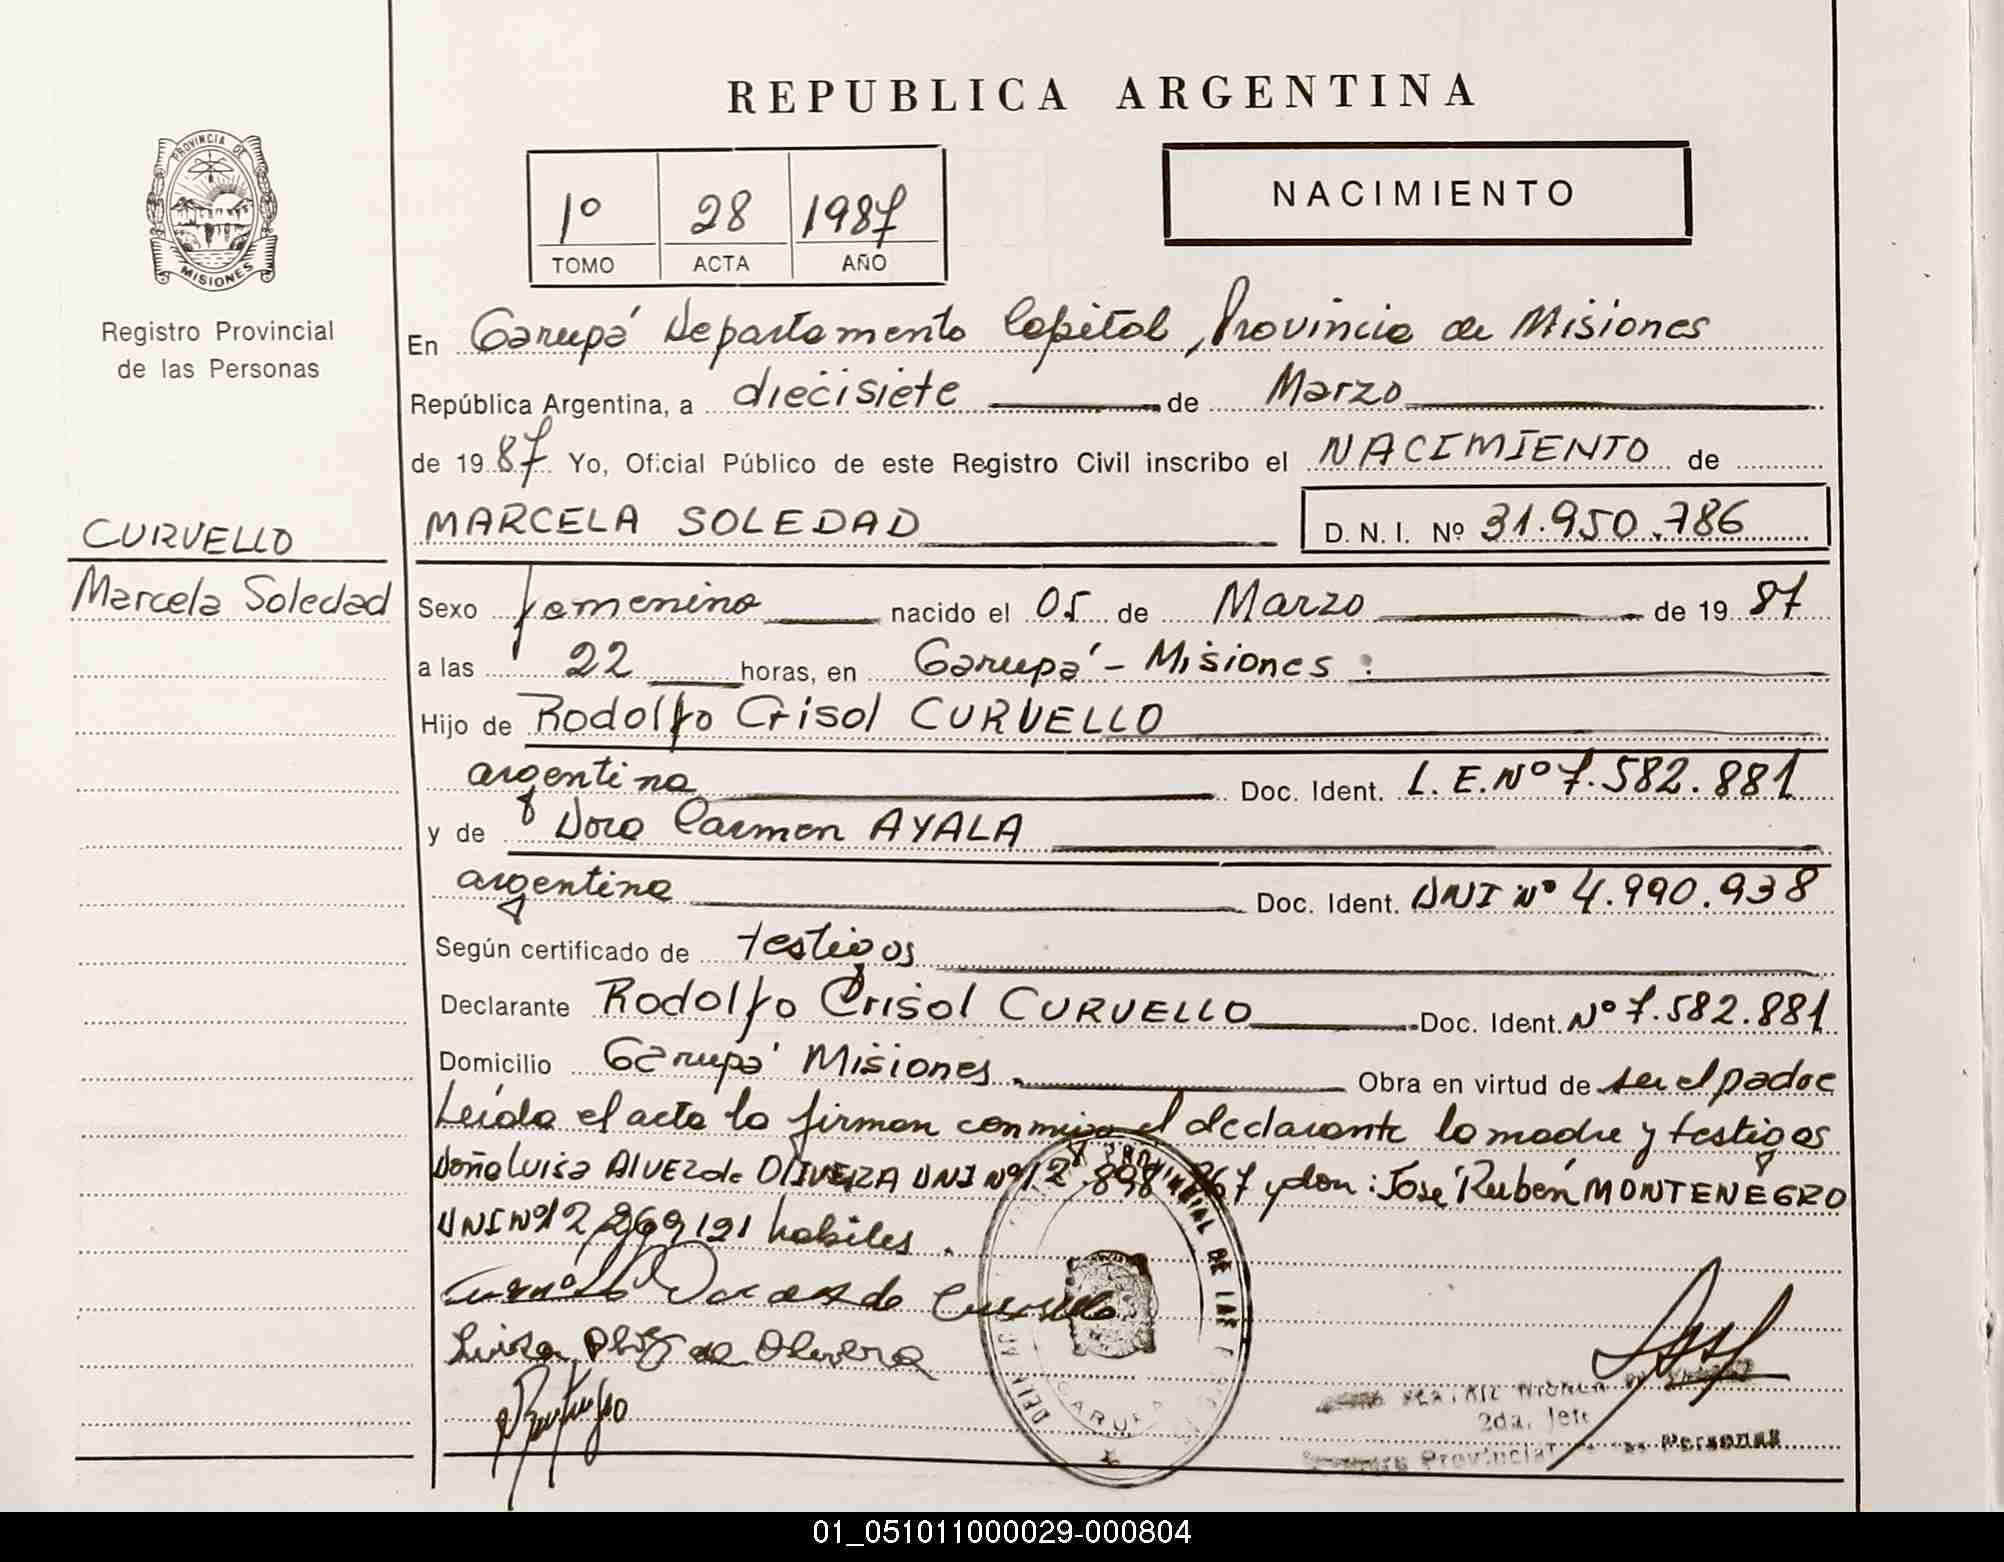 REPUBLICA ARGENTINA
PROVINCIA DE
MISIONES
Registro Provincial
de las Personas
1º 28 1987
TOMO ACTA AÑO
NACIMIENTO
En Garupá Departamento Capital, Provincia de Misiones
República Argentina, a diecisiete de Marzo
de 1987 Yo, Oficial Público de este Registro Civil inscribo el NACIMIENTO de
CURVELLO
Marcela Soledad
MARCELA SOLEDAD D. N. I. Nº 31.950.786
Sexo femenino nacido el 05 de Marzo de 1987
a las 22 horas, en Garupá - Misiones
Hijo de Rodolfo Crisol CURVELLO
argentino Doc. Ident. L.E.Nº 7.582.881
y de Dora Carmen AYALA
argentina Doc. Ident. DNI Nº 4.990.938
Según certificado de testigos
Declarante Rodolfo Crisol CURVELLO Doc. Ident. Nº 7.582.881
Domicilio Garupá Misiones Obra en virtud de ser el padre
Leída el acta la firman conmigo el declarante la madre y testigos
Doña Luisa ALVEZ de OLIVEIRA DNI Nº 12.898. y don: José Rubén MONTENEGRO
DNI Nº 12 habiles.
Luisa de Olivera
PROVINCIAL DE LAS
GARUPA
2da. Jefe
Provincial Personas
01_051011000029-000804